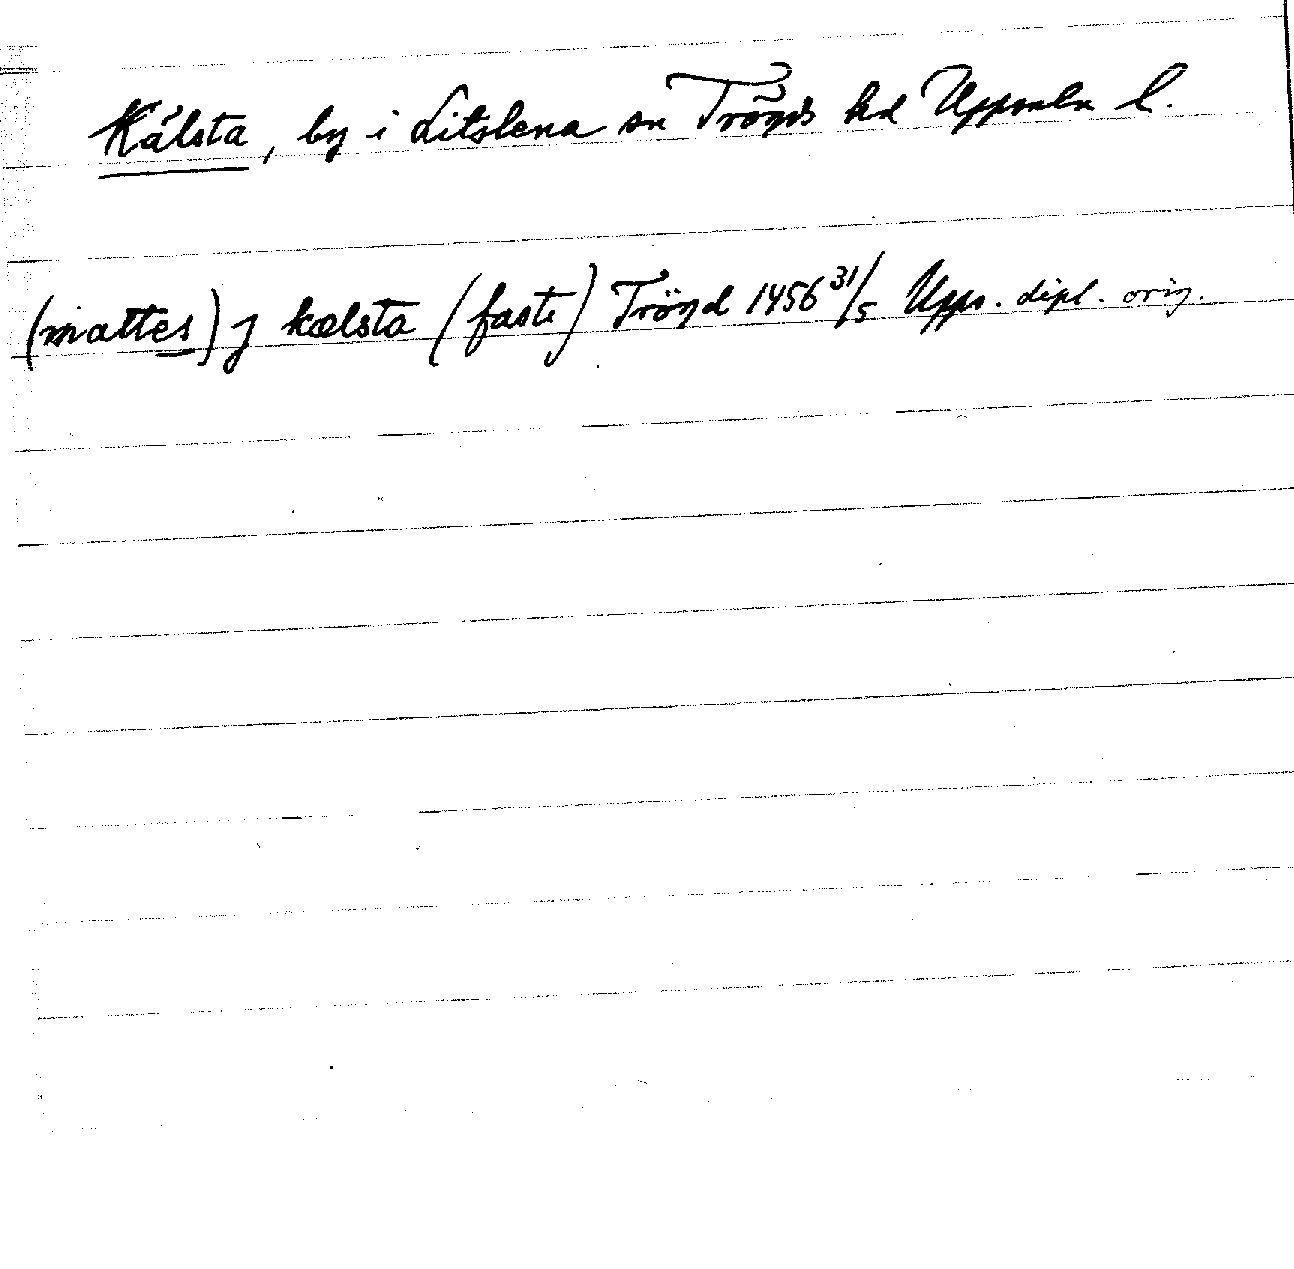 Kälsta, by i Litslena sn Trögds hd Uppsala l.
(mattes) j kælsta (faste) Trögd 1456 31/5 Upps. dipl. orig.